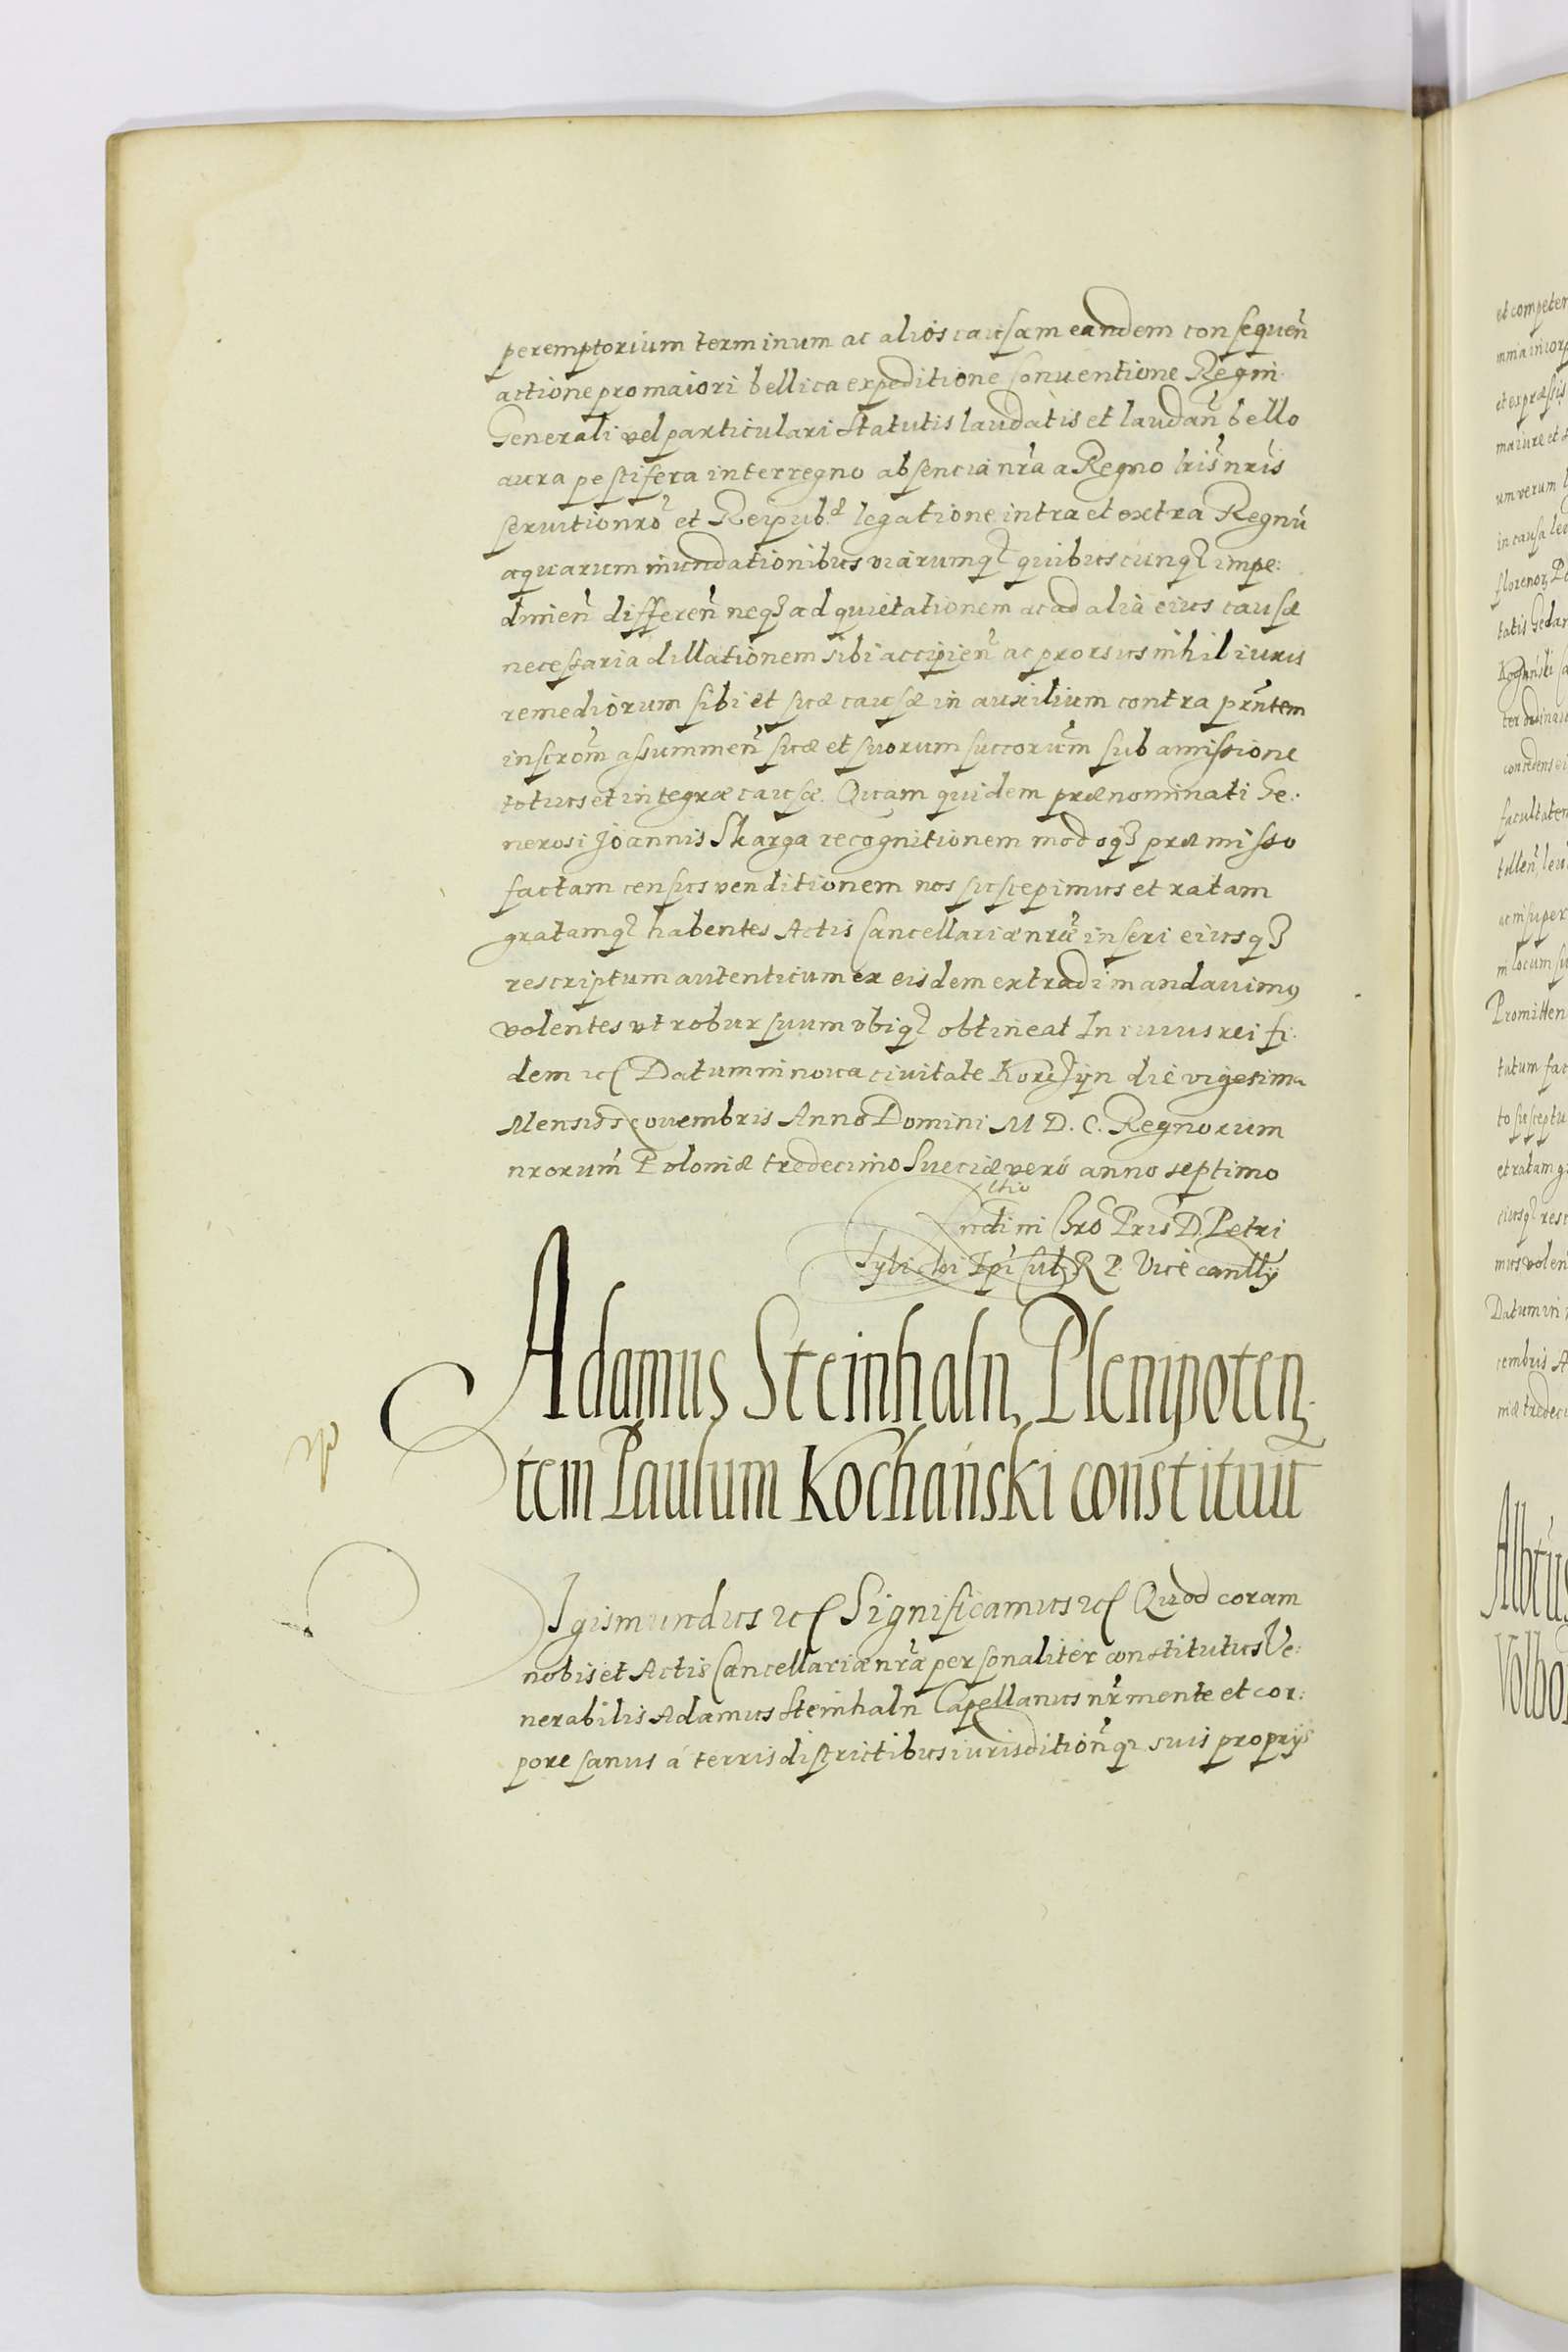 peremptorium terminum ac alios causam eandem consequen̄
actione pro maiori bellica expeditione Conuentione Regni
Generali vel particulari Statutis laudatis et laudan̄ bello
aura pestifera interregno absencia nr̄a a Regno lris nris
seruitio nro et Reipub.æ legatione intra et extra Regnū
aquarum inundationibus viarumq3 quibuscunq3 impe:
dimen̄ differen̄ neq3 ad quietationem ac ad alia eius causæ
necessaria dillationem sibi accipien̄ ac prorsus nihil iuris
remediorum sibi et suæ causæ in auxilium contra prn̄tem
inscrom̄ assummen̄ suæ et suorum succorum̄ sub amissione
totius et integræ causæ. Quam quidem prænominati Ge:
nerosi Joannis Skarga recognitionem modoq3 præmisso
factam census venditionem nos suscepimus et ratam
gratamq3 habentes Actis Cancellariæ nræ inseri eiusq3
rescriptum autenticum ex eisdem extradi mandauimus
volentes vt robur suum vbiq3 obtineat In cuius rei fi:
dem etc Datum in noua ciuitate Korczyn die vigesima
Mensis Nouembris Anno Domini M D. C. Regnorum
nrorum̄ Poloniæ tredecimo Sueciæ vero anno septimo
Rndi in Chro Pris D. Petri
Tylicki Epi Cul. R P. Vice canllÿ
Adamus Steinhaln, Plenipoten
tem Paulum Kochański constituit
Sigismundus etc Significamus etc Quod coram
nobis et Actis Cancellariæ nr̄æ personaliter constitutus Ve:
nerabilis Adamus Steinhaln Capellanus nr̄ mente et cor:
pore sanus á terris districtibus iurisdition̄q3 suis proprijs
et competen
omnia in corp
et expræssis
maiure et s
um verum
in causa
florenor Po
tatis Gedan
Kochański
ter ordina
concedens ei
facultatem
tollen̄ leu
ac insuper
in locum su
Promitten
tutum fac
to susceptu
et ratam g
eiusq3 resc
mus volen
Datum in
cembris A
niæ tredeci
Albtus
Volbo